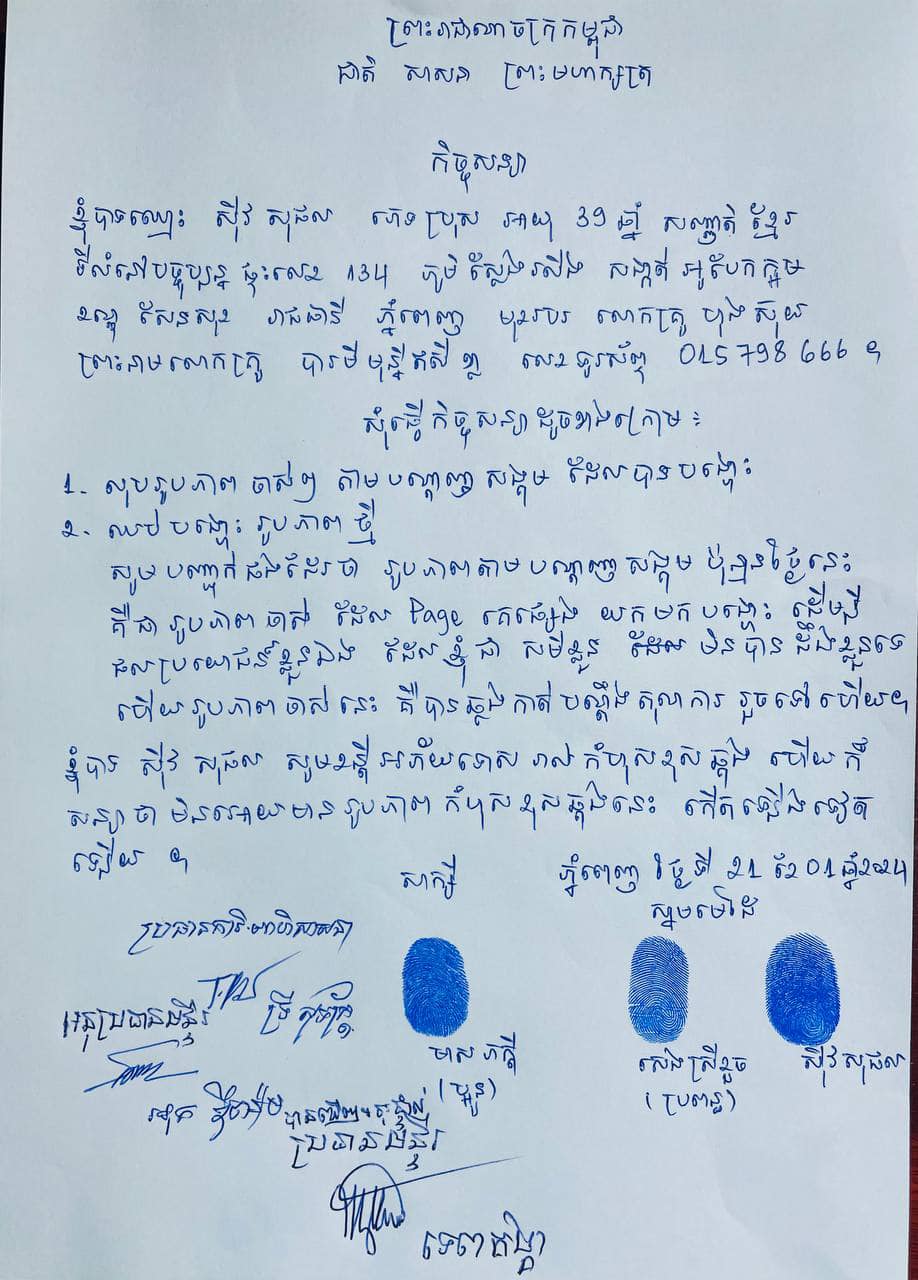 ព្រះរាជាណាចក្រកម្ពុជា
ជាតិ សាសនា ព្រះមហាក្សត្រ
កិច្ចសន្យា
ខ្ញុំបាទឈ្មោះ ស៊ីវ សុផល ភេទ ប្រុស អាយុ 39 ឆ្នាំ សញ្ជាតិ ខ្មែរ
ទីលំនៅបច្ចុប្បន្ន ផ្ទះលេខ 134 ភូមិ ស្លែងរលើង សង្កាត់ អូបែកក្អម
ខណ្ឌ សែនសុខ រាជធានី ភ្នំពេញ មុខរបរ លោកគ្រូ ហុងស៊ុយ
ព្រះនាមលោកគ្រូ បារមី មុន្នីឥសី ខ្លា លេខទូរស័ព្ទ 015 798 666 ។
សុំធ្វើ កិច្ចសន្យា ដូចខាងក្រោម ៖
1. លុបរូបភាព ចាស់ៗ តាមបណ្ដាញ សង្គម ដែលបានបង្ហោះ
2. ឈប់បង្ហោះ រូបភាព ថ្មី
សូមបញ្ជាក់ផងដែរថា រូបភាពតាមបណ្ដាញសង្គម ប៉ុន្មានថ្ងៃនេះ
គឺជា រូបភាពចាស់ ដែល Page គេផ្សេង យកមកបង្ហោះ ដើម្បី
ផលប្រយោជន៍ខ្លួនឯង ដែលខ្ញុំជា សមីខ្លួន ដែល មិនបាន ដឹងខ្លួនទេ
ហើយរូបភាពចាស់នេះ គឺបានឆ្លងកាត់ បណ្ដឹងតុលាការ រួចទៅហើយ។
ខ្ញុំបាទ ស៊ីវ សុផល សូមខន្តី អភ័យទោស រាល់ កំហុសខុសឆ្គង ហើយក៏
សន្យាថា មិនអោយមាន រូបភាព កំហុសខុសឆ្គងនេះ កើតឡើងទៀត
ឡើយ ។
សាក្សី ភ្នំពេញ ថ្ងៃទី 21 ខែ 01 ឆ្នាំ 2024
ស្នាមមេដៃ
អនុប្រធានមន្ទីរ
មាស ភក្ដី សេង ស្រីតូច ស៊ីវ សុផល
(ប្អូន) (ប្រពន្ធ)
ប្រធានមន្ទីរ